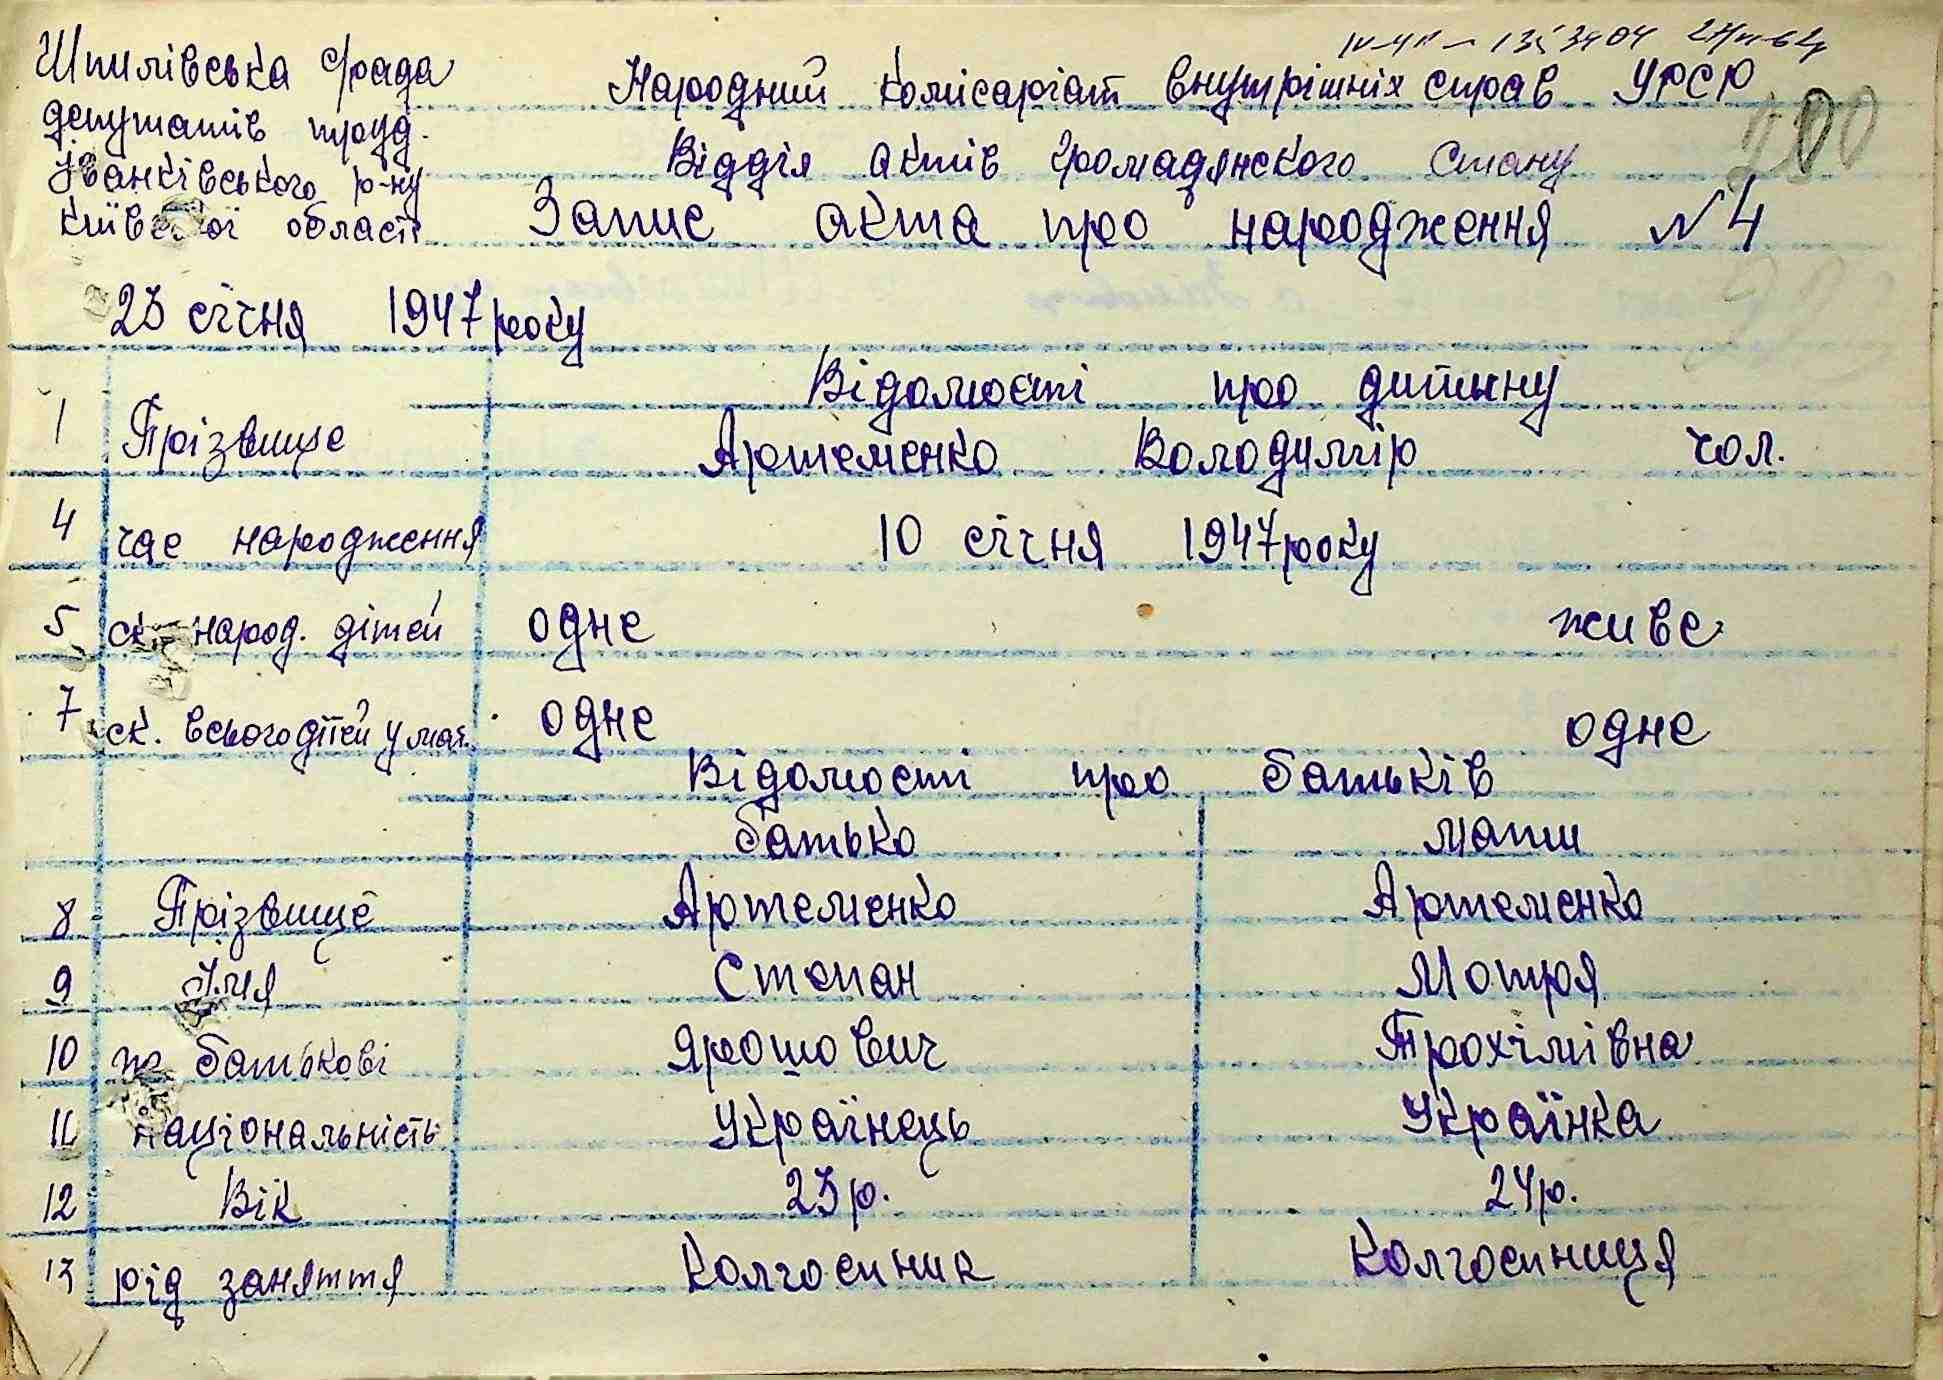 Шпилівська с/рада
депутатів труд.
Іванківського р-ну
Київської області
Народний комісаріат внутрішніх справ УРСР
Відділ актів громадянского стану
Запис акта про народження №4
23 січня 1947 року
Відомості про дитину
1 Прізвище Артеменко Володимир чол.
4 час народження 10 січня 1947 року
5 ск. народ. дітей одне живе
7 ск. всього дітей у мат. одне одне
Відомості про батьків
батько мати
8 Прізвище Артеменко Артеменко
9 Імя Степан Мотря
10 по батькові Ярошович Трохімівна
11 національність Українець Українка
12 Вік 23 р. 24 р.
13 рід заняття Колгоспник Колгоспниця